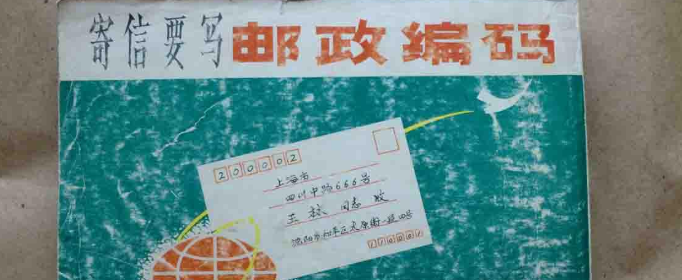 寄信要写邮政编码
200002
上海市
四川中路666号
王林同志收
沈阳市和平区太原街一段四号
110001